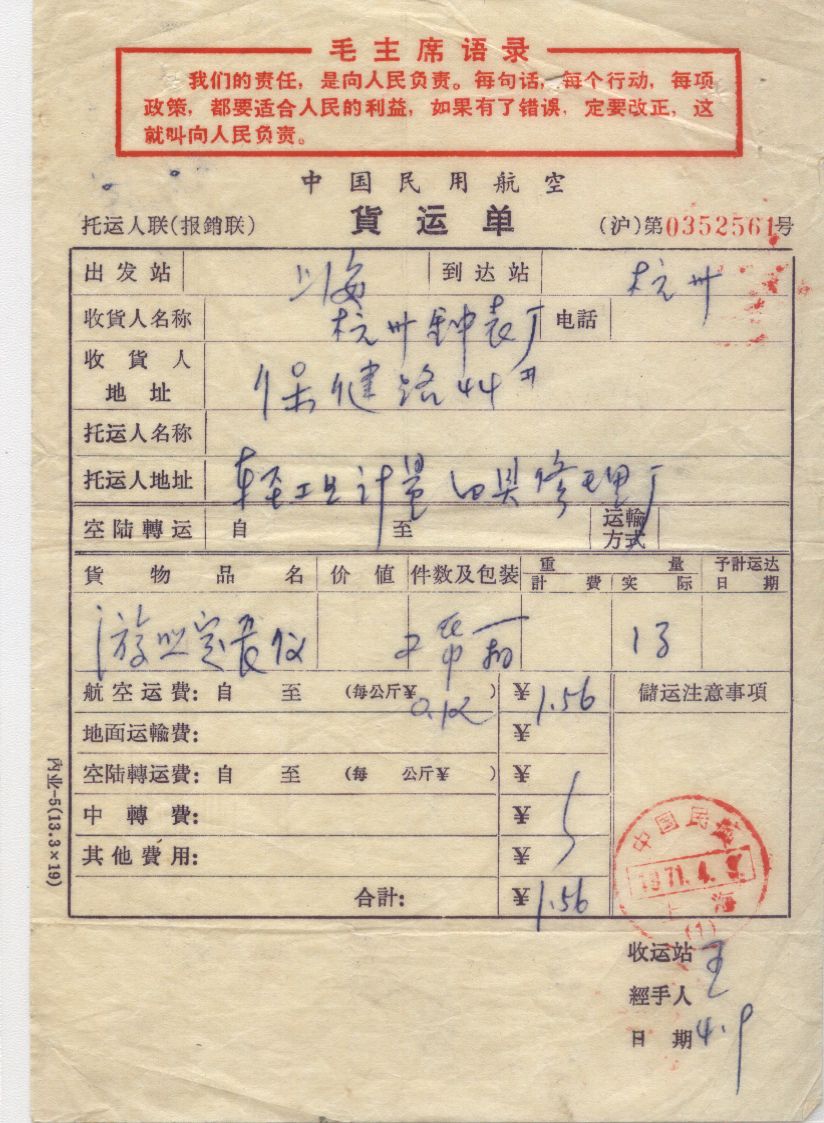 毛主席语录
我们的责任，是向人民负责。每句话，每个行动，每项
政策，都要适合人民的利益，如果有了错误，定要改正，这
就叫向人民负责。
中国民用航空
托运人联(报銷联) 貨运单 (沪)第0352561号
出发站 上海 到达站 杭州
收貨人名称 杭州钟表厂 电話
收貨人
地址 保健路44#
托运人名称
托运人地址 轻工业计量 修理厂
空陆轉运 自 至 运輸
方式
貨物品名 价値 件数及包装 重量 予計运达
計費 实际 日期
定长仪 13
航空运費: 自 至 (每公斤¥ 0.12 ) ¥ 1.56 儲运注意事項
地面运輸費: ¥
空陆轉运費: 自 至 (每 公斤¥ ) ¥
中轉費: ¥
其他費用: ¥
合計: ¥ 1.56
中国民航
1971.4.9
上海
(1)
收运站 王
經手人
日期 4.9
内业-5(13.3×19)